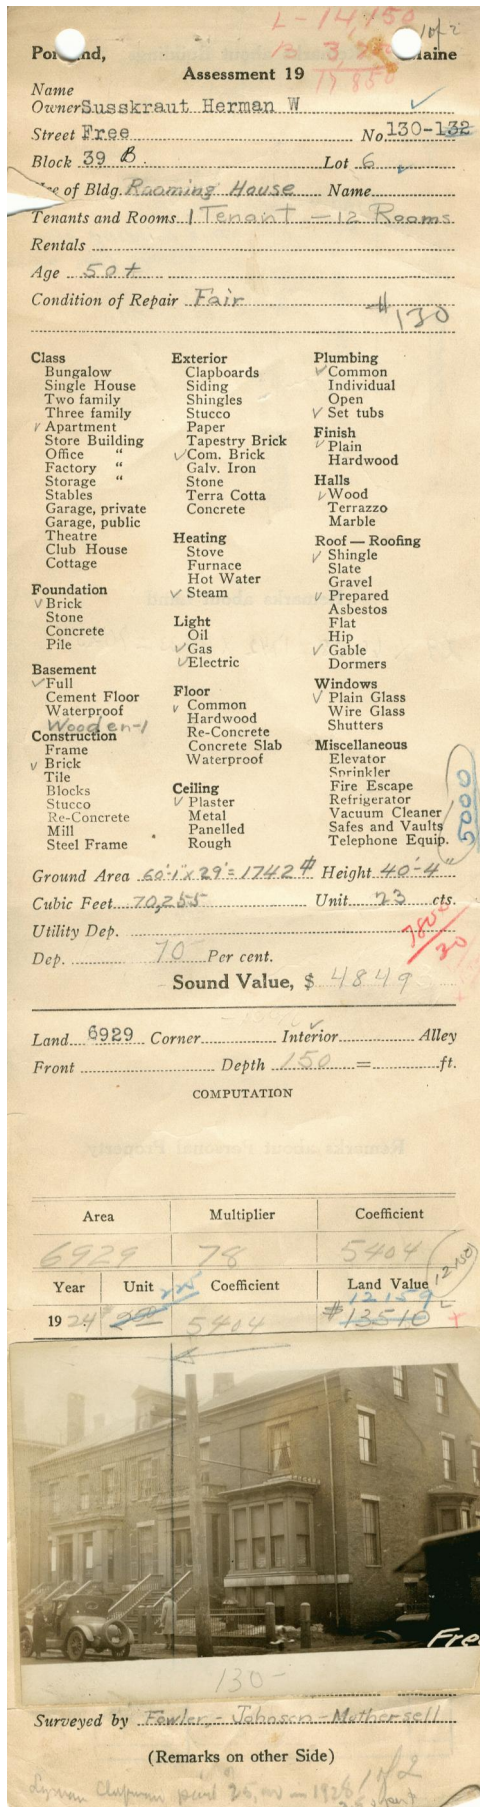 L - 14,150
1 of 2
B 3,700
17850
Portland, Maine
Assessment 19
Name
Owner Susskraut Herman W
Street Free No. 130-132
Block 39 B. Lot 6
Use of Bldg. Rooming House Name
Tenants and Rooms 1 Tenant - 12 Rooms
Rentals
Age 50+
Condition of Repair Fair
$130
Class
Bungalow
Single House
Two family
Three family
✓ Apartment
Store Building
Office "
Factory "
Storage "
Stables
Garage, private
Garage, public
Theatre
Club House
Cottage
Foundation
✓ Brick
Stone
Concrete
Pile
Basement
✓ Full
Cement Floor
Waterproof
Wooden-1
Construction
Frame
✓ Brick
Tile
Blocks
Stucco
Re-Concrete
Mill
Steel Frame
Exterior
Clapboards
Siding
Shingles
Stucco
Paper
Tapestry Brick
✓ Com. Brick
Galv. Iron
Stone
Terra Cotta
Concrete
Heating
Stove
Furnace
Hot Water
✓ Steam
Light
Oil
✓ Gas
✓ Electric
Floor
✓ Common
Hardwood
Re-Concrete
Concrete Slab
Waterproof
Ceiling
✓ Plaster
Metal
Panelled
Rough
Plumbing
✓ Common
Individual
Open
✓ Set tubs
Finish
✓ Plain
Hardwood
Halls
✓ Wood
Terrazzo
Marble
Roof — Roofing
✓ Shingle
Slate
Gravel
✓ Prepared
Asbestos
Flat
Hip
✓ Gable
Dormers
Windows
✓ Plain Glass
Wire Glass
Shutters
Miscellaneous
Elevator
Sprinkler
Fire Escape
Refrigerator
Vacuum Cleaner
Safes and Vaults
Telephone Equip.
5000
Ground Area 60'-1" x 29' = 1742 # Height 40'-4"
Cubic Feet 70,255 Unit 23 cts.
Utility Dep.
7800/30
Dep. 70 Per cent.
Sound Value, $ 4849
Land 6929 Corner Interior ✓ Alley
Front Depth 150 = ft.
COMPUTATION
Area Multiplier Coefficient
6929 78 5404
12150
Year Unit Coefficient Land Value
225 12159
1924 $250 5404 $13510
Free
130-
Surveyed by Fowler, - Johnson - Mothersell
(Remarks on other Side)
Lyman Chapman paid 25,000 - 1928
1 of 2